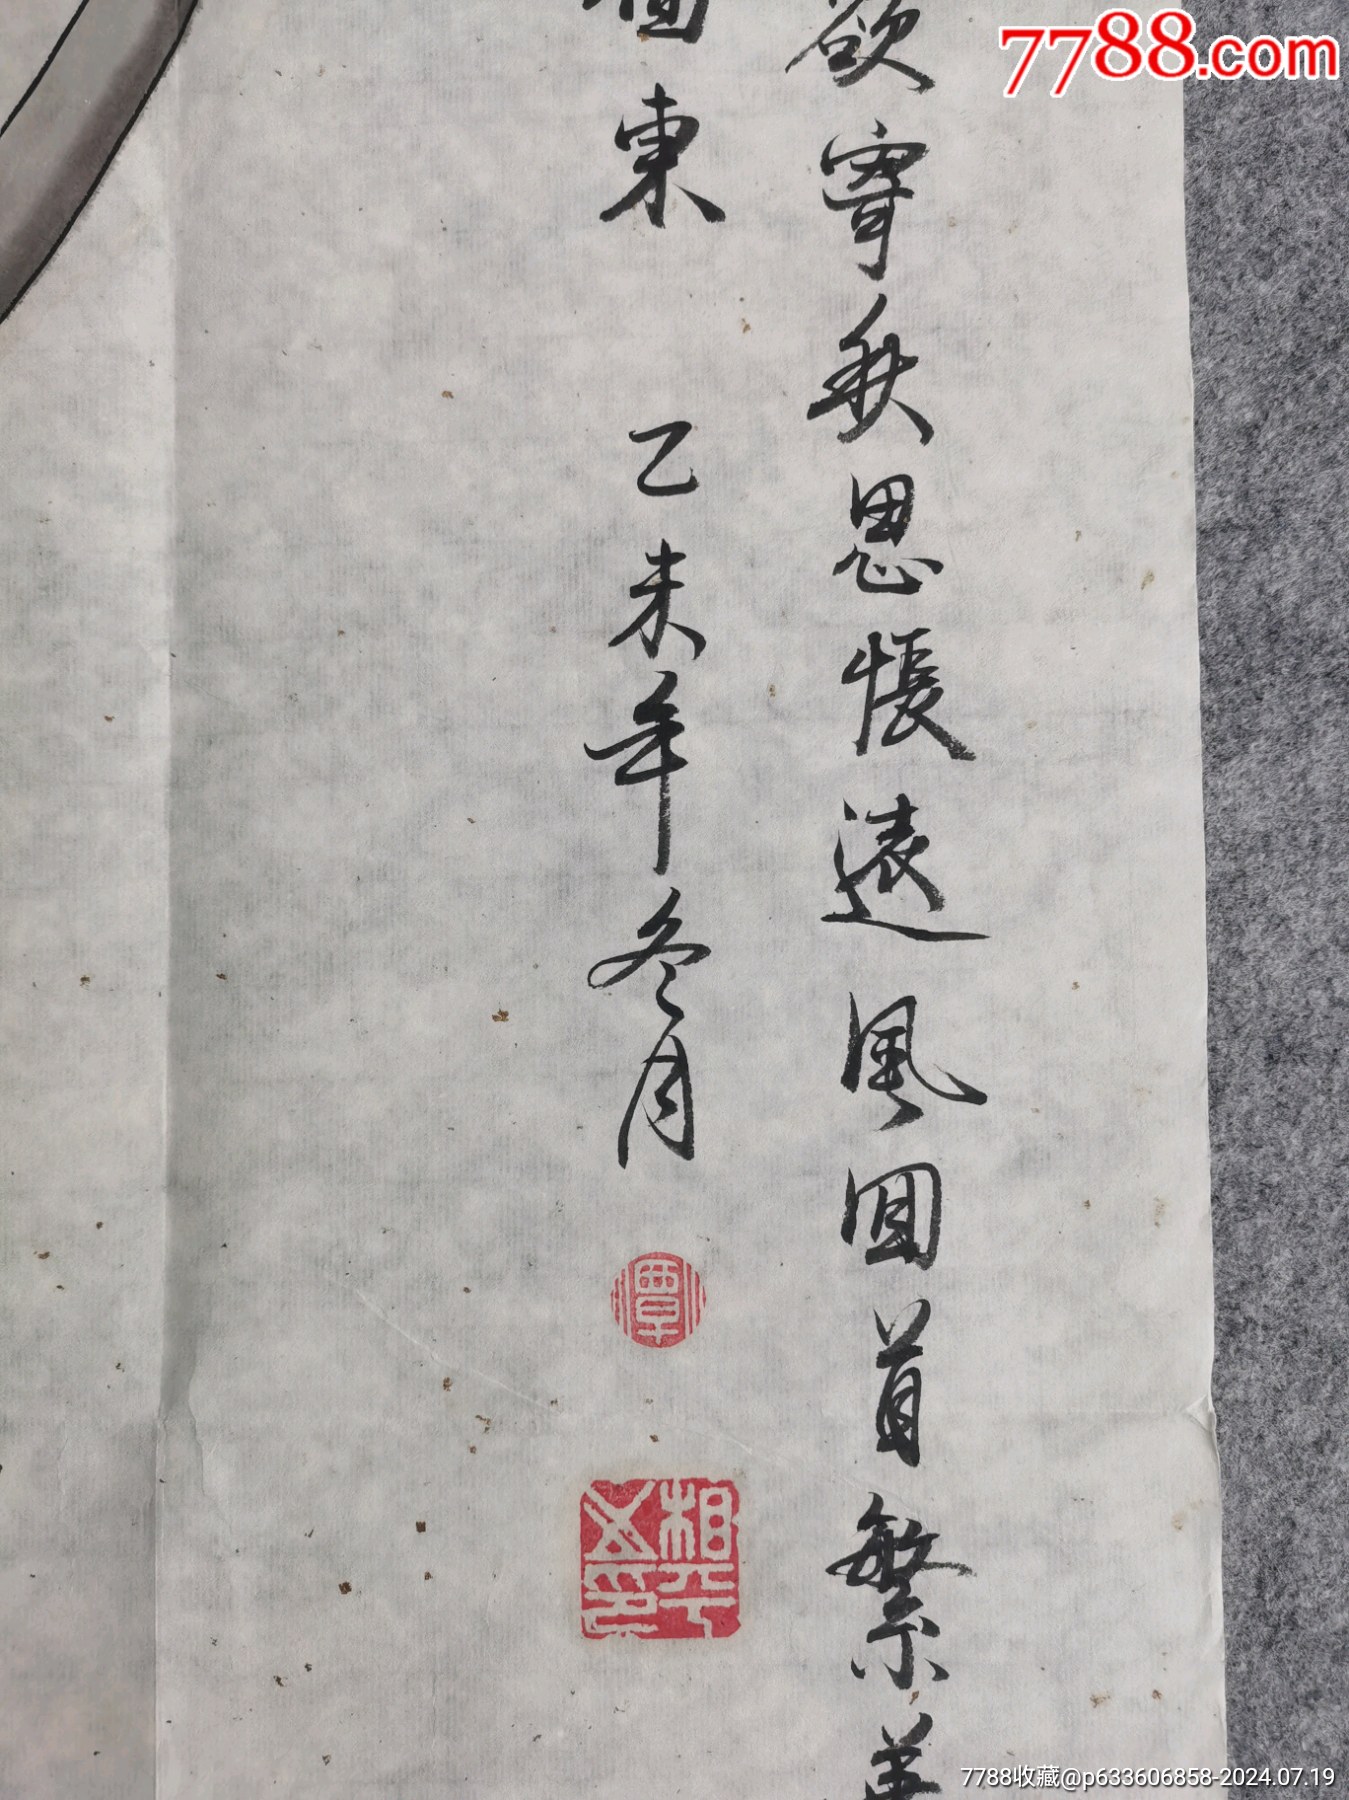 7788.com
欲寄秋思悵遠風回首繁
東 乙未年冬月
覃
相平
印
7788收藏@p633606858-2024.07.19